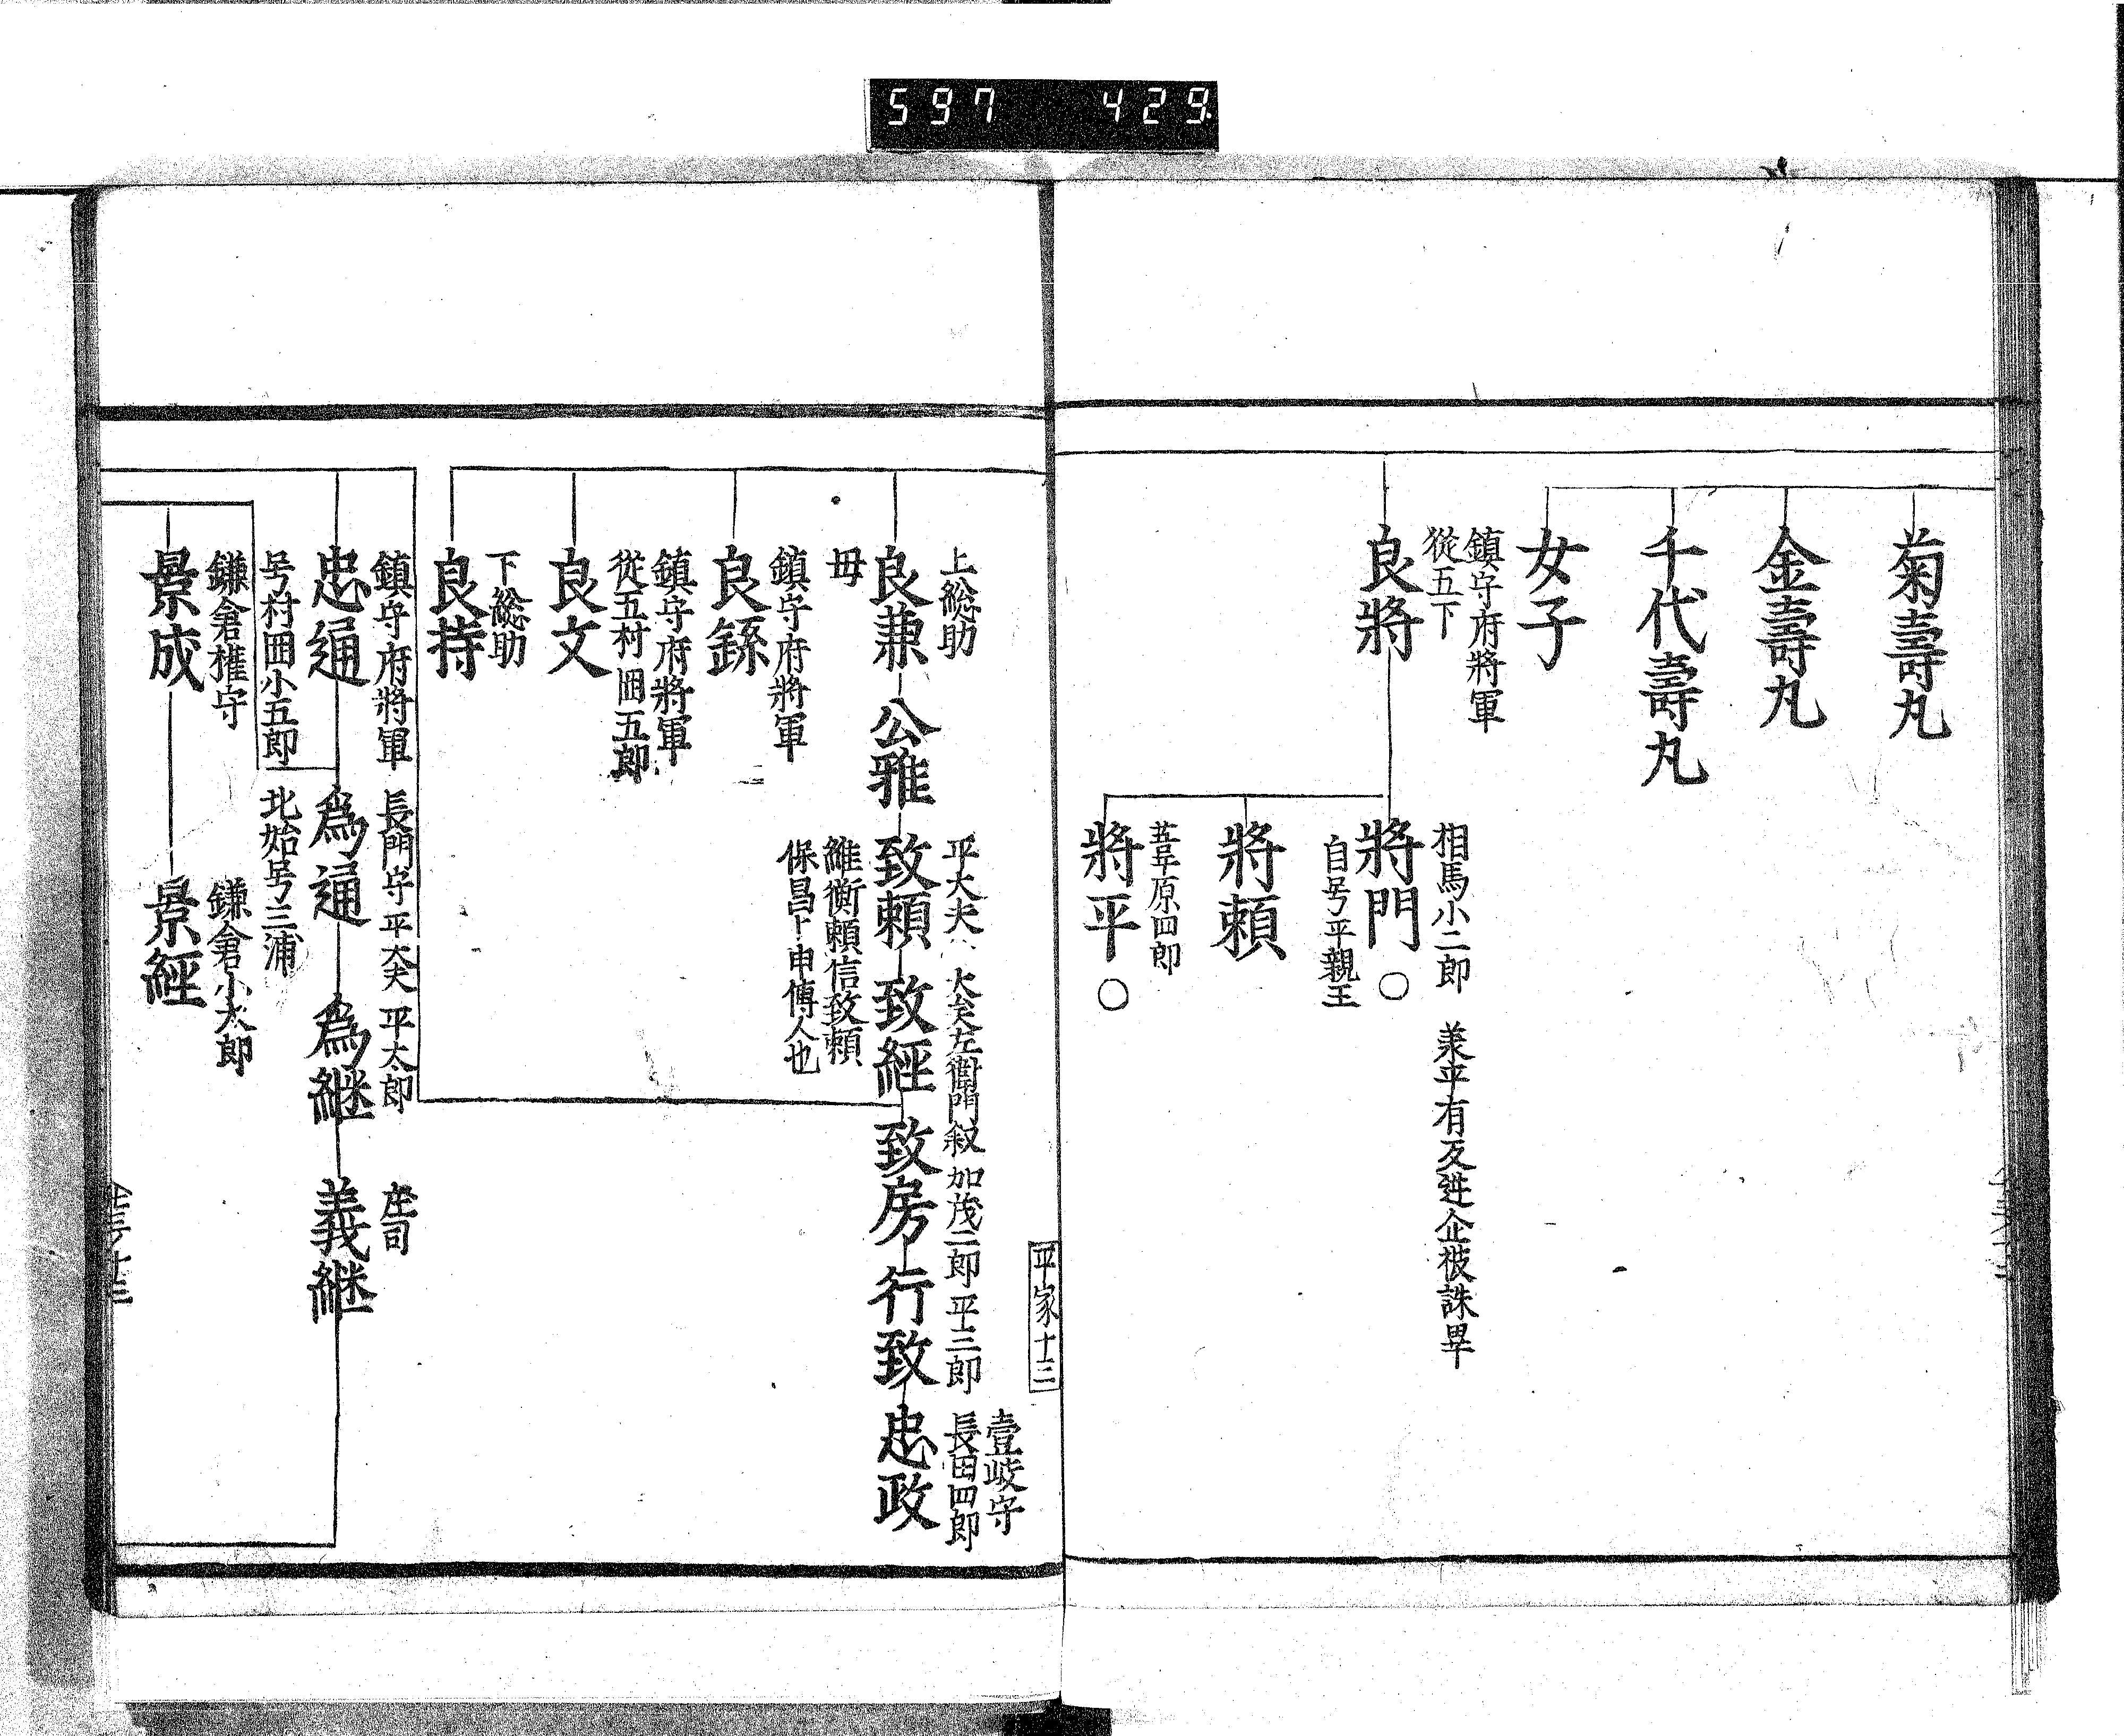 597 429
菊壽丸
金壽丸
千代壽丸
女子
鎮守府將軍
從五下
良將
相馬小二郎
將門○
自号平親王
將頼
葦原四郎
將平○
平家十三
上総助
良兼
公雅
平大夫
致頼
大矢左衛門
致經
加茂二郎
致房
平三郎
行致
壹岐守
長田四郎
忠政
母
維衡頼信致頼
鎮守府將軍
良繇
鎮守府將軍
從五村岡五郎
良文
下総助
良持
鎮守府將軍
忠通
長門守平大夫
為通
平太郎
為継
庄司
義継
号村岡小五郎
北始号三浦
鎌倉權守
景成
鎌倉小太郎
景經